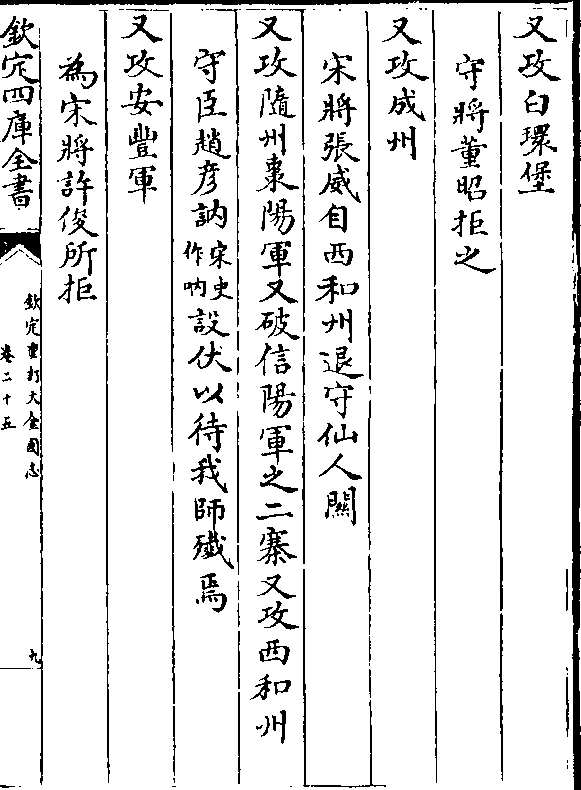 又攻白環堡
守將董昭拒之
又攻成州
宋將張威自西和州退守仙人關
又攻隨州棗陽軍又破信陽軍之二寨又攻西和州
守臣趙彦訥宋史作呐設伏以待我師殱焉
又攻安豐軍
為宋將許俊所拒
欽定四庫全書
欽定重訂大金國志
卷二十五
九